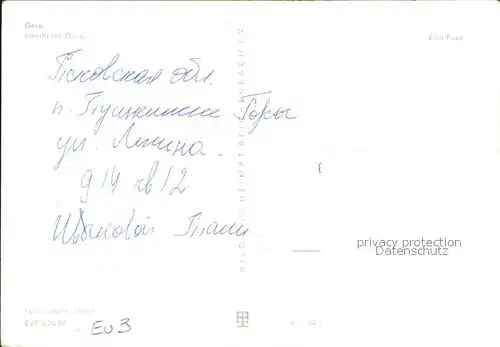 Gera
Echt Foto
Псковская обл.
п. Пушкинские Горы
ул. Ленина
д 14 кв 12
Ивановой Тани
BILD UND HEIMAT REICHENBACH I. V.
privacy protection
Datenschutz
EVP
EU3